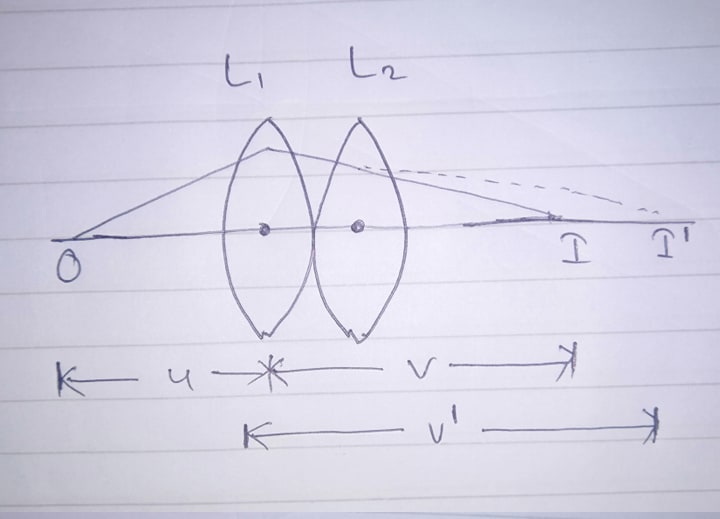 L₁ L₂
O I I'
u v
v'